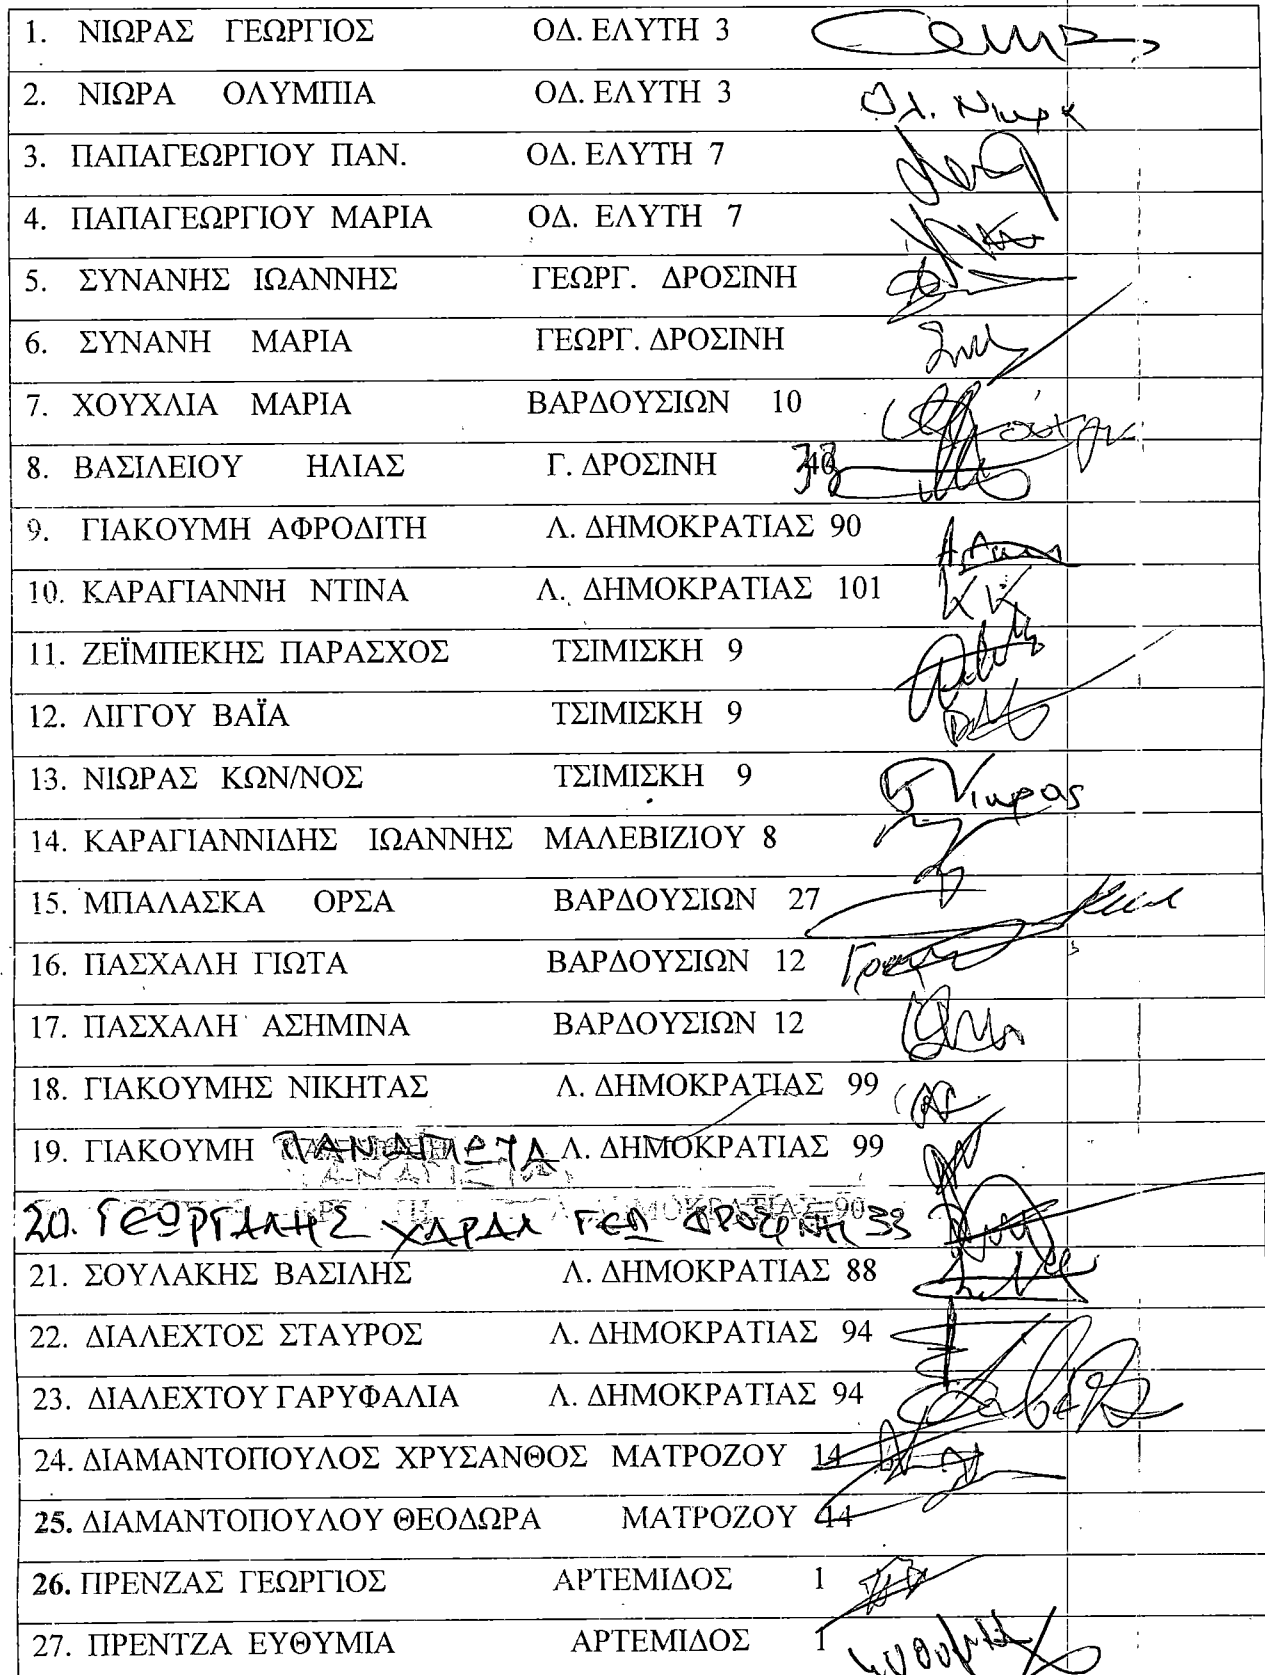 1. ΝΙΩΡΑΣ ΓΕΩΡΓΙΟΣ ΟΔ. ΕΛΥΤΗ 3
2. ΝΙΩΡΑ ΟΛΥΜΠΙΑ ΟΔ. ΕΛΥΤΗ 3 Ολ. Νιωρα
3. ΠΑΠΑΓΕΩΡΓΙΟΥ ΠΑΝ. ΟΔ. ΕΛΥΤΗ 7
4. ΠΑΠΑΓΕΩΡΓΙΟΥ ΜΑΡΙΑ ΟΔ. ΕΛΥΤΗ 7
5. ΣΥΝΑΝΗΣ ΙΩΑΝΝΗΣ ΓΕΩΡΓ. ΔΡΟΣΙΝΗ
6. ΣΥΝΑΝΗ ΜΑΡΙΑ ΓΕΩΡΓ. ΔΡΟΣΙΝΗ
7. ΧΟΥΧΛΙΑ ΜΑΡΙΑ ΒΑΡΔΟΥΣΙΩΝ 10
8. ΒΑΣΙΛΕΙΟΥ ΗΛΙΑΣ Γ. ΔΡΟΣΙΝΗ
9. ΓΙΑΚΟΥΜΗ ΑΦΡΟΔΙΤΗ Λ. ΔΗΜΟΚΡΑΤΙΑΣ 90
10. ΚΑΡΑΓΙΑΝΝΗ ΝΤΙΝΑ Λ. ΔΗΜΟΚΡΑΤΙΑΣ 101
11. ΖΕΪΜΠΕΚΗΣ ΠΑΡΑΣΧΟΣ ΤΣΙΜΙΣΚΗ 9
12. ΛΙΓΓΟΥ ΒΑΪΑ ΤΣΙΜΙΣΚΗ 9
13. ΝΙΩΡΑΣ ΚΩΝ/ΝΟΣ ΤΣΙΜΙΣΚΗ 9 Νιωρας
14. ΚΑΡΑΓΙΑΝΝΙΔΗΣ ΙΩΑΝΝΗΣ ΜΑΛΕΒΙΖΙΟΥ 8
15. ΜΠΑΛΑΣΚΑ ΟΡΣΑ ΒΑΡΔΟΥΣΙΩΝ 27
16. ΠΑΣΧΑΛΗ ΓΙΩΤΑ ΒΑΡΔΟΥΣΙΩΝ 12
17. ΠΑΣΧΑΛΗ ΑΣΗΜΙΝΑ ΒΑΡΔΟΥΣΙΩΝ 12
18. ΓΙΑΚΟΥΜΗΣ ΝΙΚΗΤΑΣ Λ. ΔΗΜΟΚΡΑΤΙΑΣ 99
19. ΓΙΑΚΟΥΜΗ Λ. ΔΗΜΟΚΡΑΤΙΑΣ 99
20. ΓΕΩΡΓΑΛΗΣ ΧΑΡΑΛ ΓΕΩ ΔΡΟΣΙΝΗ 33
21. ΣΟΥΛΑΚΗΣ ΒΑΣΙΛΗΣ Λ. ΔΗΜΟΚΡΑΤΙΑΣ 88
22. ΔΙΑΛΕΧΤΟΣ ΣΤΑΥΡΟΣ Λ. ΔΗΜΟΚΡΑΤΙΑΣ 94
23. ΔΙΑΛΕΧΤΟΥ ΓΑΡΥΦΑΛΙΑ Λ. ΔΗΜΟΚΡΑΤΙΑΣ 94
24. ΔΙΑΜΑΝΤΟΠΟΥΛΟΣ ΧΡΥΣΑΝΘΟΣ ΜΑΤΡΟΖΟΥ 14
25. ΔΙΑΜΑΝΤΟΠΟΥΛΟΥ ΘΕΟΔΩΡΑ ΜΑΤΡΟΖΟΥ 14
26. ΠΡΕΝΖΑΣ ΓΕΩΡΓΙΟΣ ΑΡΤΕΜΙΔΟΣ 1
27. ΠΡΕΝΤΖΑ ΕΥΘΥΜΙΑ ΑΡΤΕΜΙΔΟΣ 1